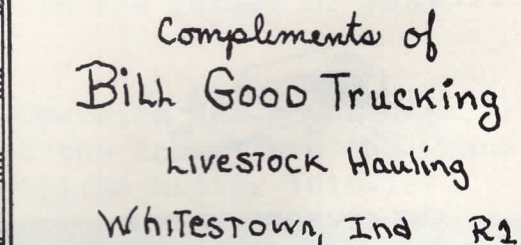 Complements of
Bill Good Trucking
Livestock Hauling
Whitestown, Ind R1